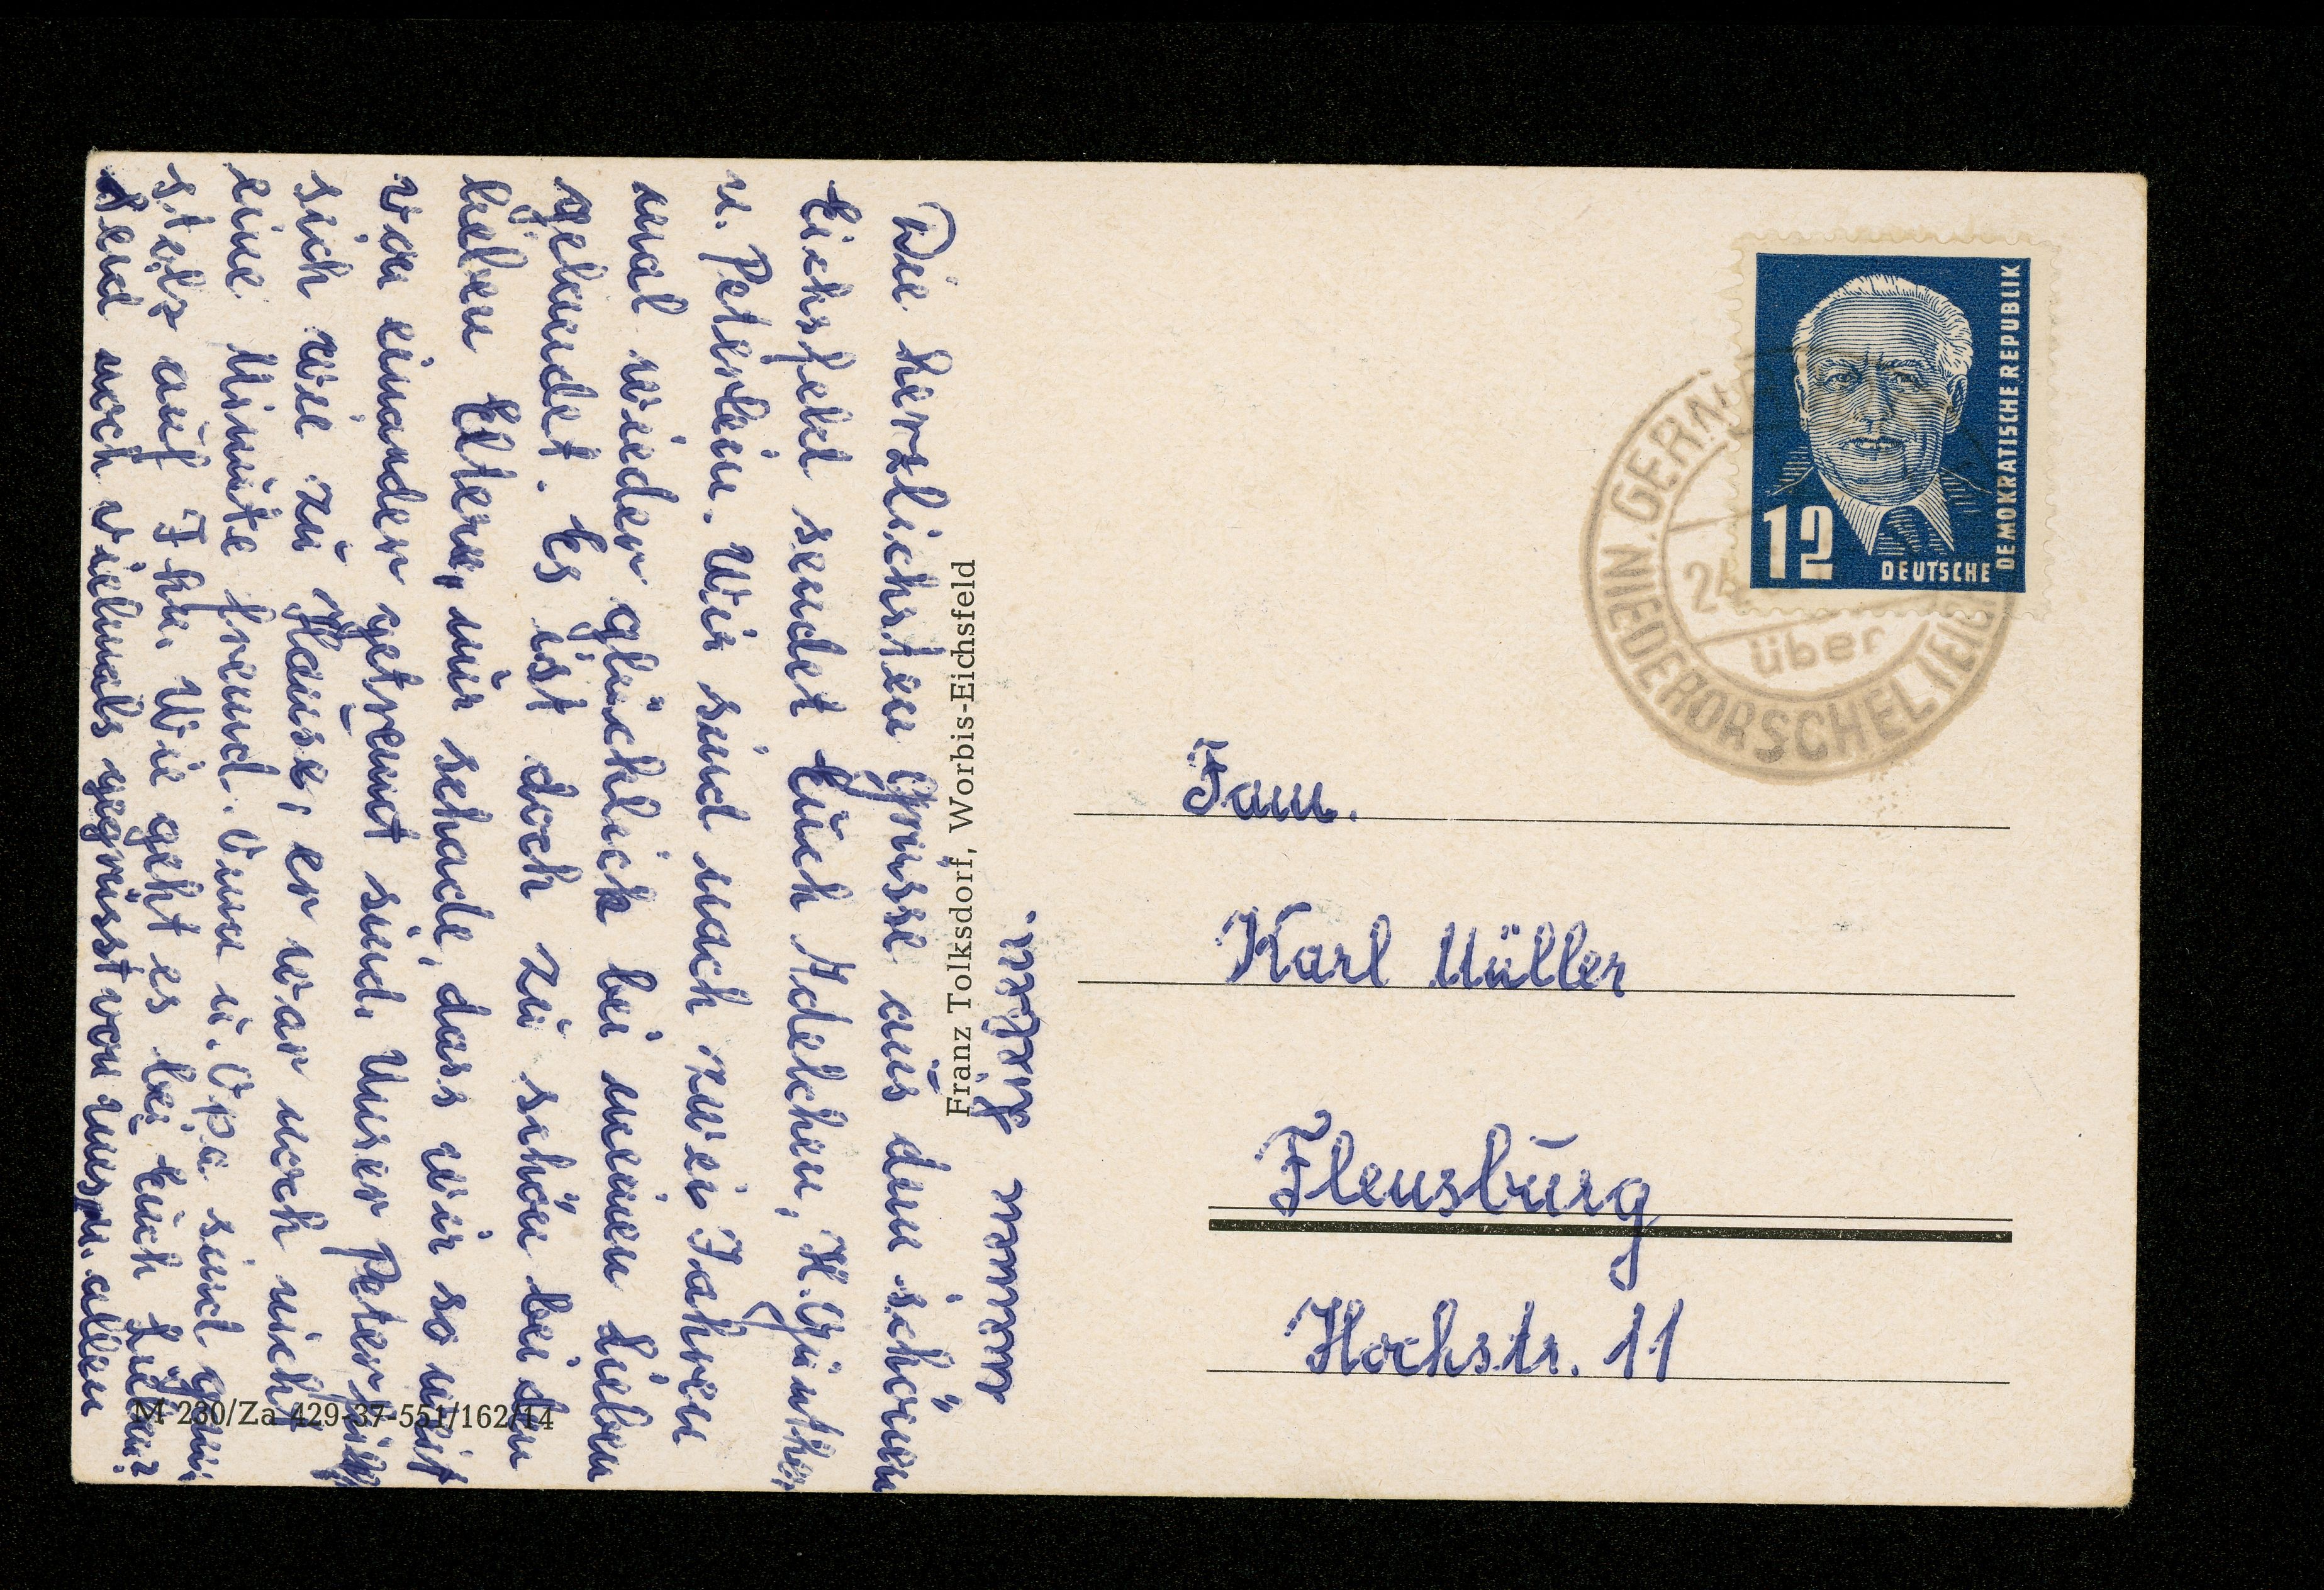 Die herzlichsten Grüsse aus dem schönen
Eichsfeld sendet Euch Adelchen, K. Günther
u. Peterlein. Wir sind nach zwei Jahren
mal wieder glücklich bei meinen Lieben
gelandet. Es ist doch zu schön bei den
lieben Eltern, nur schade, dass wir so weit
von einander getrennt sind. Unser Peter
sich wie zu Hause, er war noch nicht
eine Minute fremd. Oma u. Opa sind ganz
stolz auf Ihn. Wie geht es bei Euch Lieben?
Seid noch vielmals gegrüsst von uns u. allen
Franz Tolksdorf, Worbis-Eichsfeld
M 230/Za 429-37-551/162/14
12
DEUTSCHE
DEMOKRATISCHE REPUBLIK
NIEDERORSCHEL
über
Fam.
Karl Müller
Flensburg
Hochstr. 11